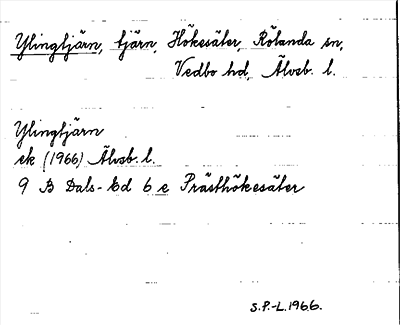 Ylingtjärn, tjärn, Hökesäter, Rölanda sn,
Vedbo hd, Älvsb. l.
Ylingtjärn
ek (1966) Älvsb. l.
9 B Dals-Ed 6 e Prästhökesäter
S.P.-L. 1966.